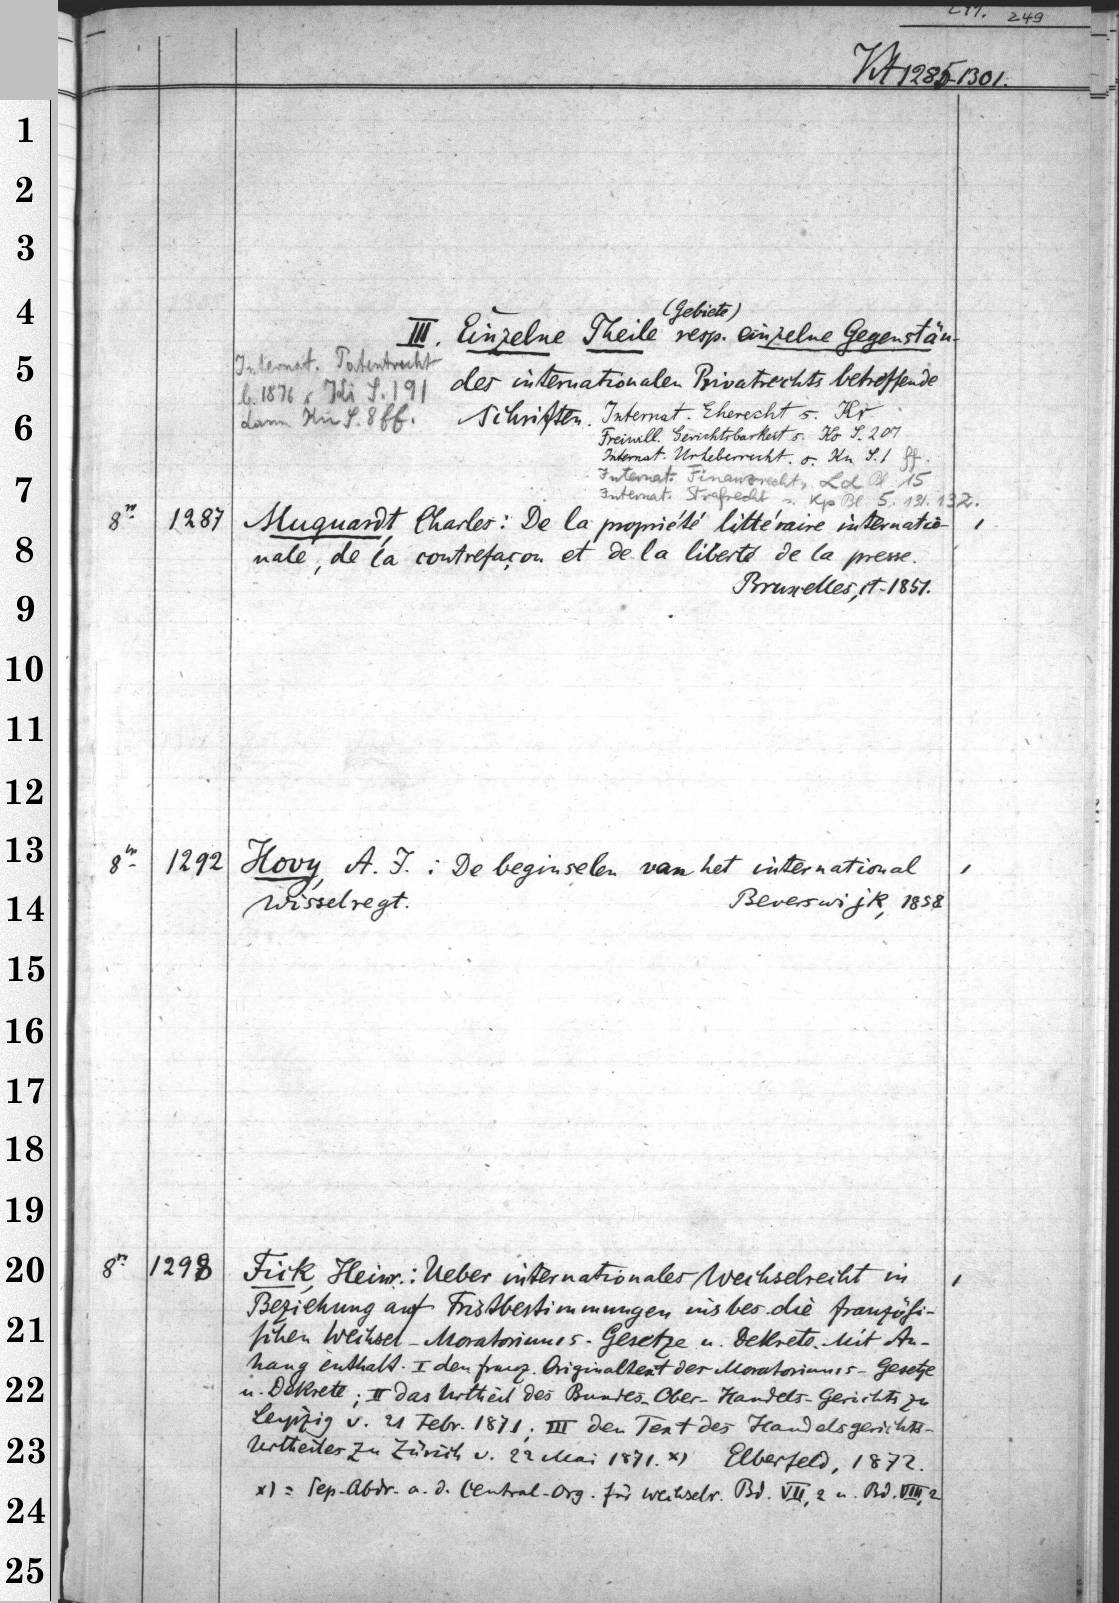 249
1285-1301.
(Gebiete)
III. Einzelne Theile resp. einzelne Gegenstän-
Internat. Patentrecht
des internationalen Privatrechts betreffende
b. 1876 s. Ki S. 191
Schriften. Internat. Eherecht s. Kr
dann Kn S. 8 ff.
Freiwill. Gerichtsbarkeit s. Ko S. 207
Internat. Urheberrecht. s. Kn S. 1 ff.
Internat. Finanzrecht, Ld Bl 15
Internat. Strafrecht s. Kp Bl 5. 131. 132.
8° 1287 Muquardt, Charles: De la propriété littéraire internatio-
nale, de la contrefaçon et de la liberté de la presse.
Bruxelles, 1851.
8° 1292 Hovy, A. J.: De beginselen van het international
wisselregt. Beverswijk, 1858
8° 1298 Fick, Heinr.: Ueber internationales Wechselrecht in
Beziehung auf Fristbestimmungen insbes. die französi-
schen Wechsel-Moratoriums-Gesetze u. Dekrete. Mit An-
hang enthalt. I den franz. Originaltext der Moratoriums-Gesetze
u. Dekrete; II das Urtheil des Bundes-Ober-Handels-Gerichts zu
Leipzig v. 21 Febr. 1871; III den Text des Handelsgerichts-
Urtheiles zu Zürich v. 22 Mai 1871. x) Elberfeld, 1872.
x) = Sep-Abdr. a. d. Central-Org. für Wechselr. Bd. VII, 2 u. Bd. VIII, 2
1
2
3
4
5
6
7
8
9
10
11
12
13
14
15
16
17
18
19
20
21
22
23
24
25